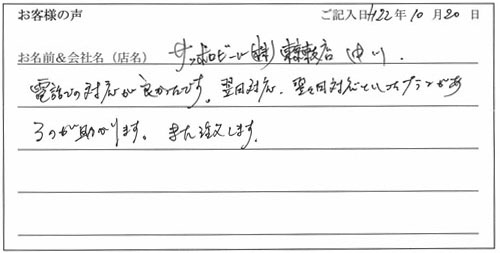 お客様の声 ご記入日 H22年10月20日
お名前&会社名(店名) サッポロビール(株) 中川.
電話での対応が良かったです。翌日対応、翌々日対応といったプランがあ
るのが助かります。また注文します。